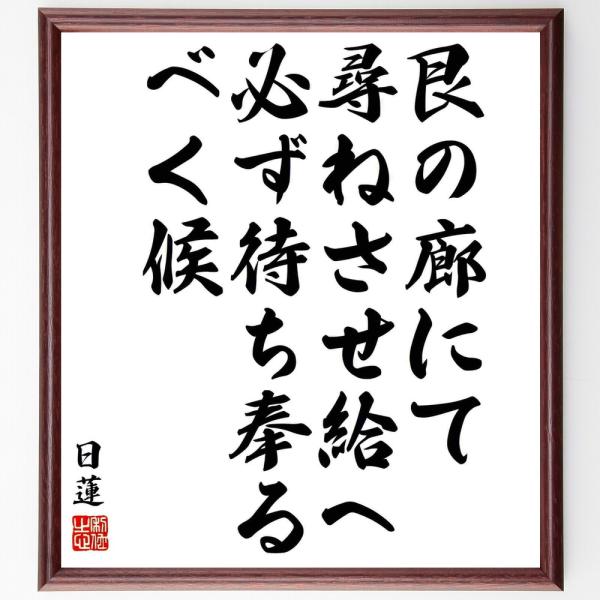 艮の廊にて
尋ねさせ給へ
必ず待ち奉る
べく候
日蓮